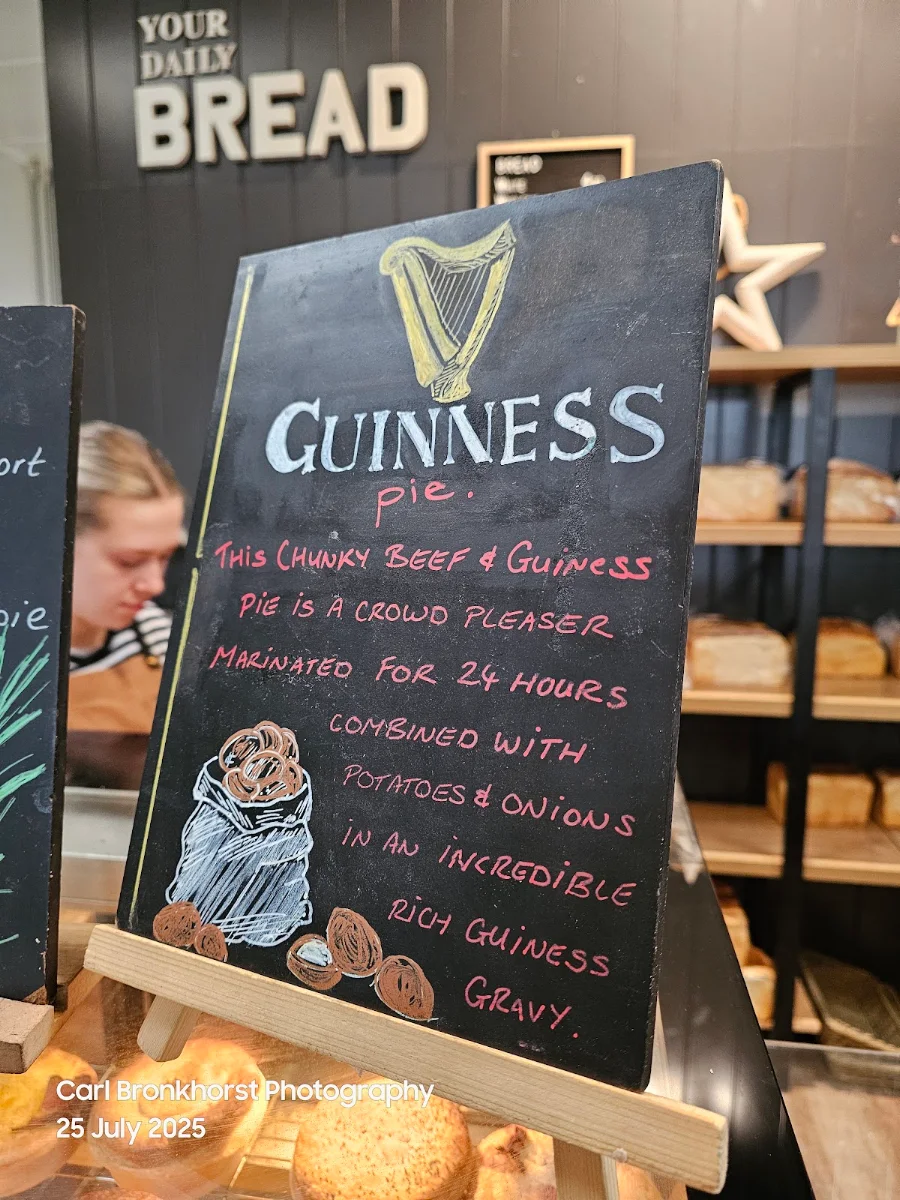 YOUR
DAILY
BREAD
BREAD
GUINNESS
pie.
THIS CHUNKY BEEF & GUINESS
PIE IS A CROWD PLEASER
MARINATED FOR 24 HOURS
COMBINED WITH
POTATOES & ONIONS
IN AN INCREDIBLE
RICH GUINESS
GRAVY.
ort
pie
Carl Bronkhorst Photography
25 July 2025